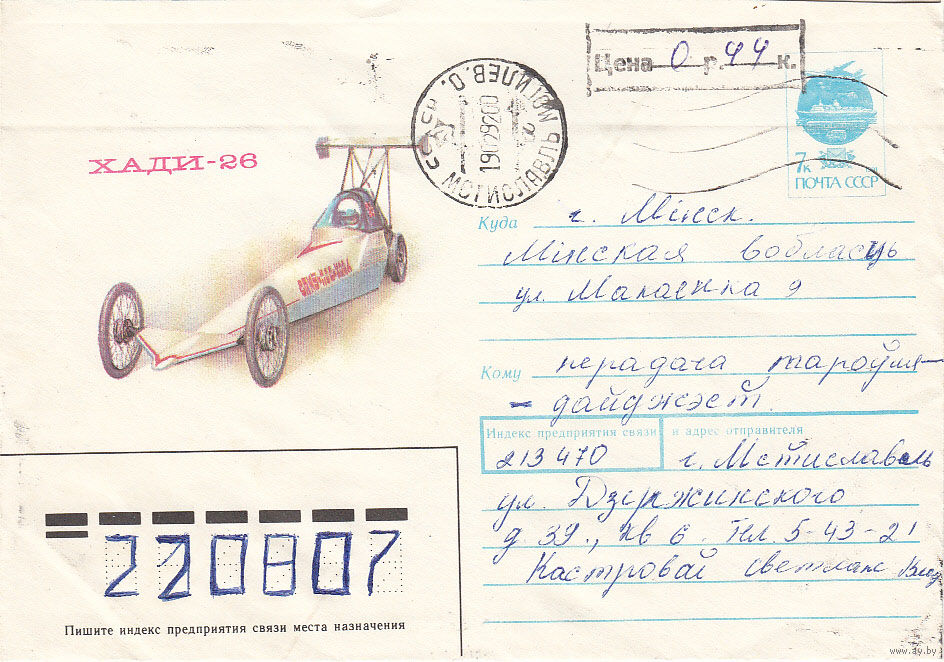 Цена 0 р. 44 к.
МСТИСЛАВЛЬ МОГИЛЕВ. О.
СССР
19029200
7к
ПОЧТА СССР
ХАДИ-26
Куда г. Мінск.
Мінская вобласць
ул. Макаёнка 9
Кому перадача
дайджэст.
Индекс предприятия связи и адрес отправителя
213470 г. Мстиславль
ул. Дзержинского
д 39., кв 6. Тел. 5-43-21
Кастровай Светлане
220807
Пишите индекс предприятия связи места назначения
www.ay.by